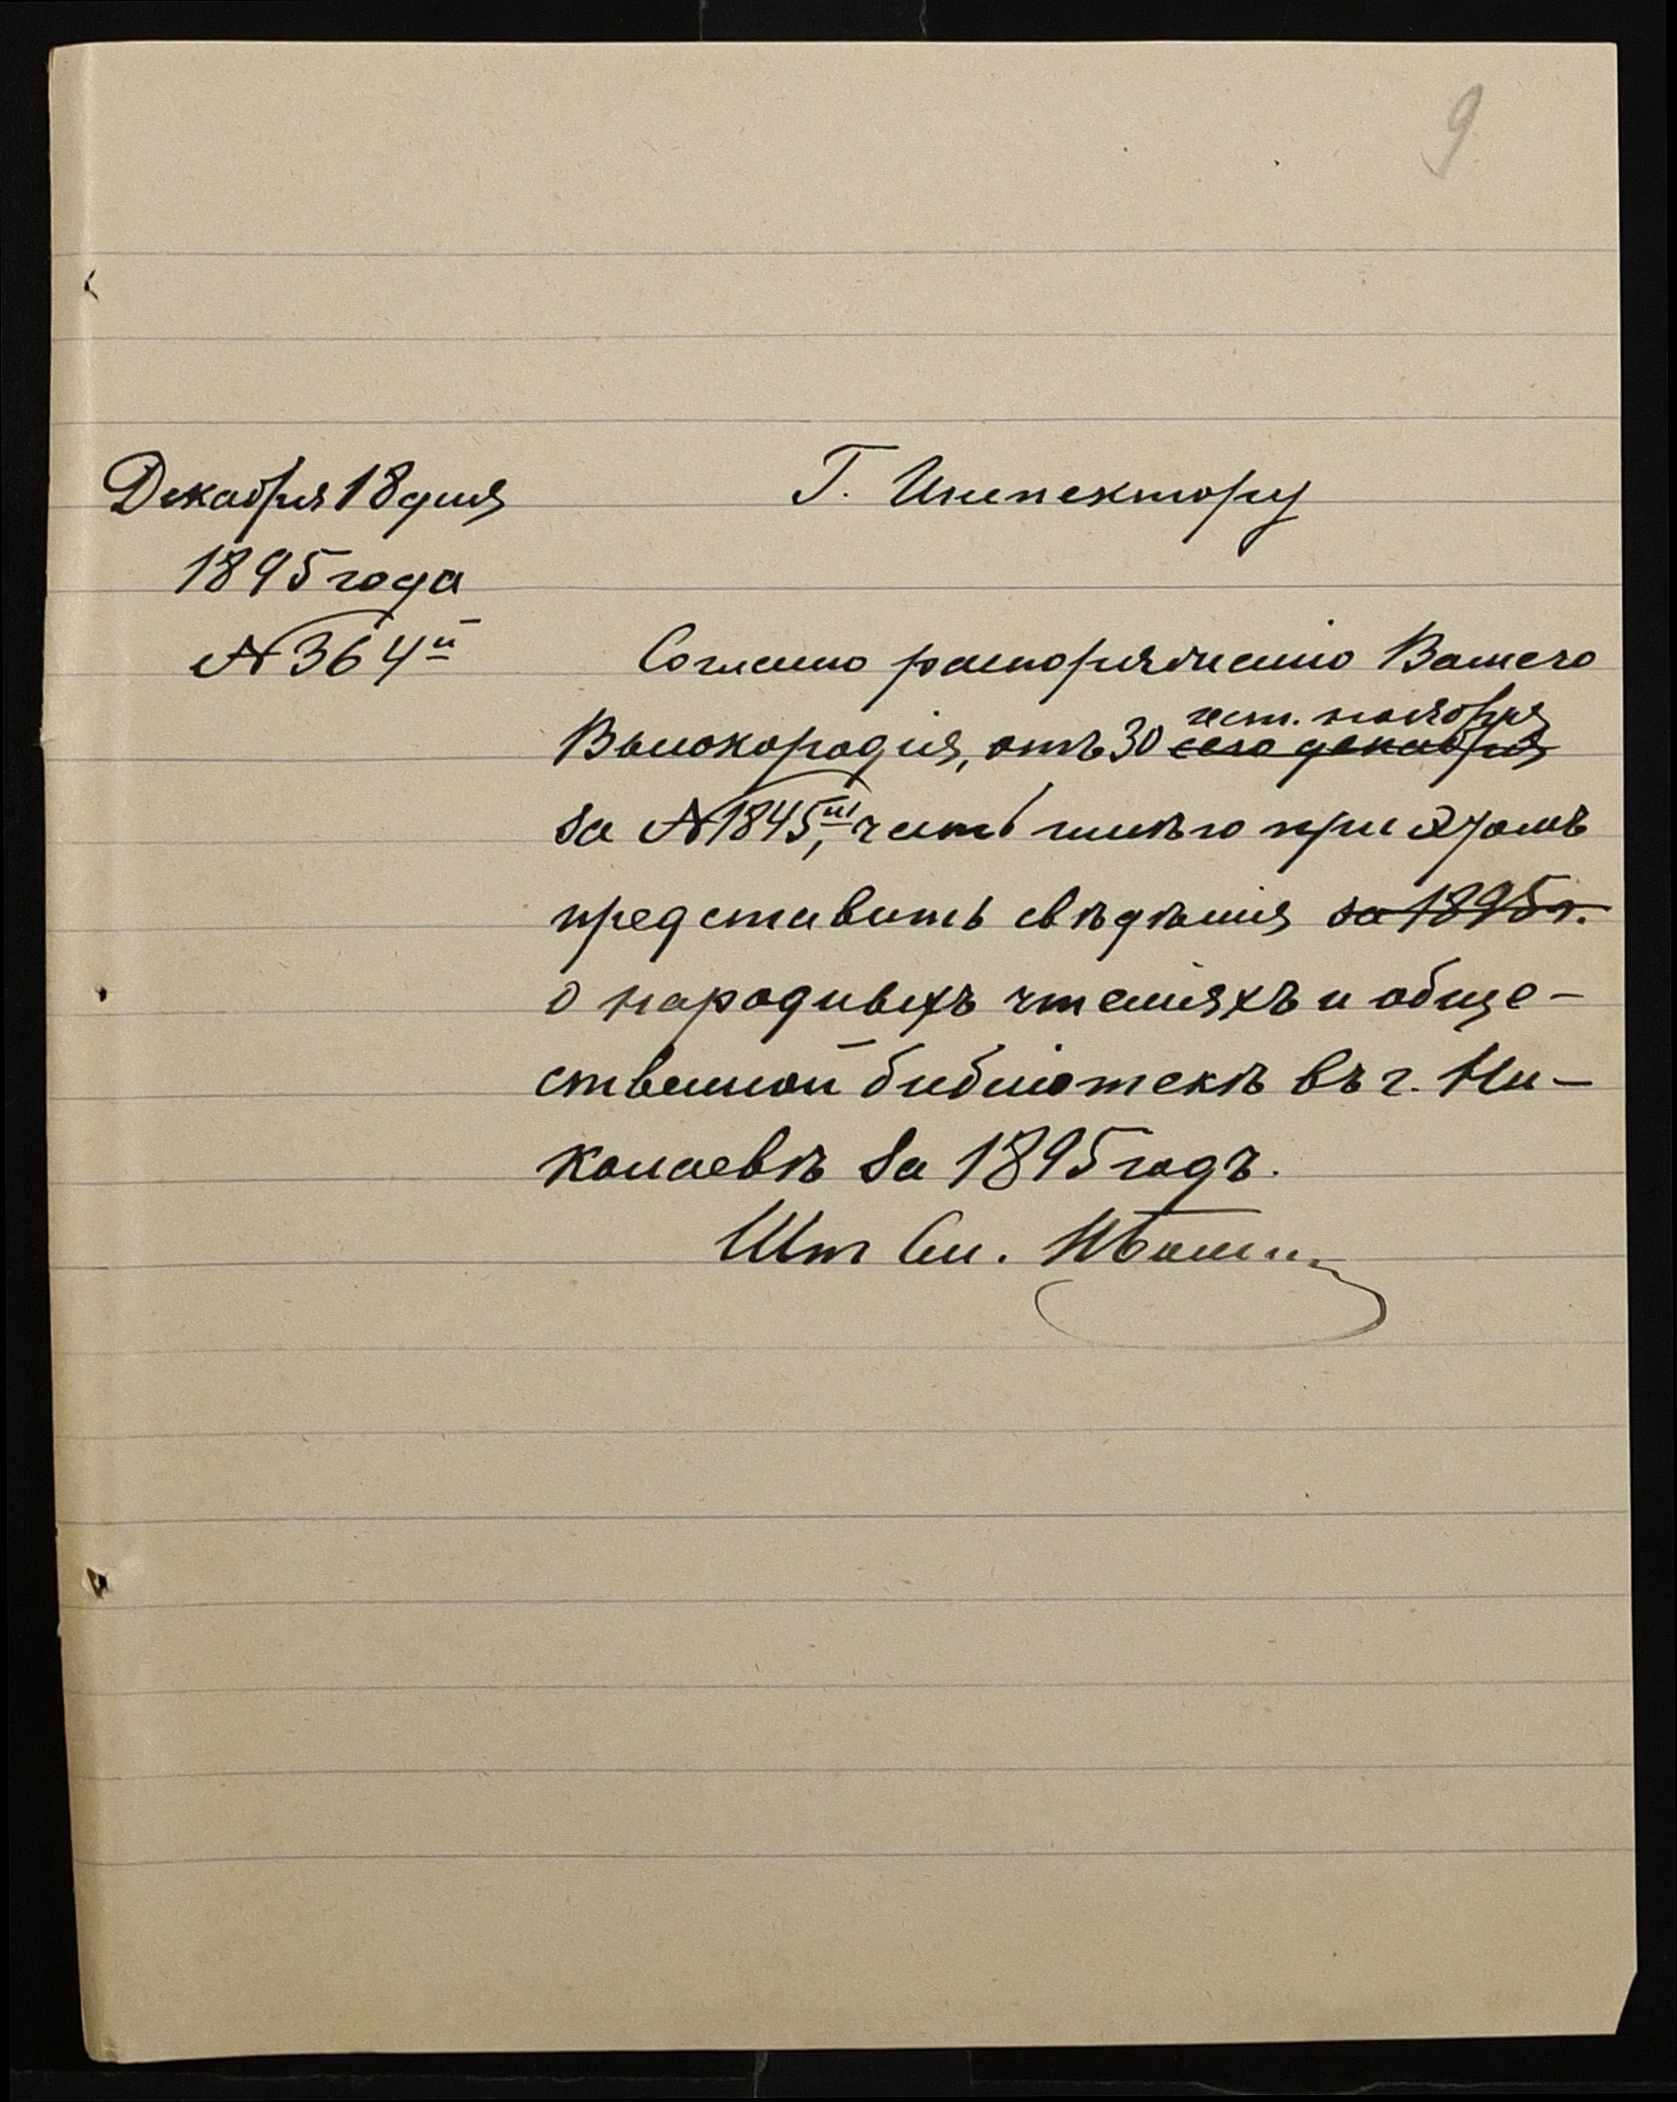 9
Декабря 18 дня
1895 года
№ 364й
Г. Инспектору
Согласно распоряженію Вашего
Высокородія, отъ 30 ист. ноября
сего декабря
за № 1845, честь имѣю при этомъ
представить свѣдѣнія за 1895 г.
о народныхъ чтеніяхъ и обще-
ственной библіотекѣ въ г. Ни-
колаевѣ за 1895 годъ.
Шт См.